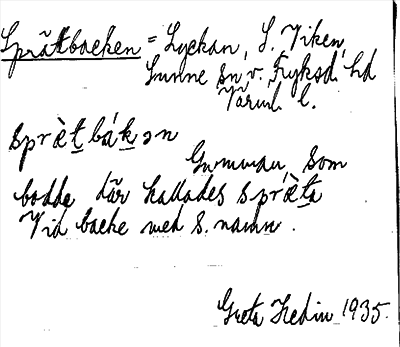 Sprättbacken = Lyckan, S. Viken,
Sunne sn v. Fryksd. hd
Värml. l.
sprὲt bákən
Gumman, som
bodde där kallades sprὲta
Vid backe med s. namn.
Greta Hedin 1935.